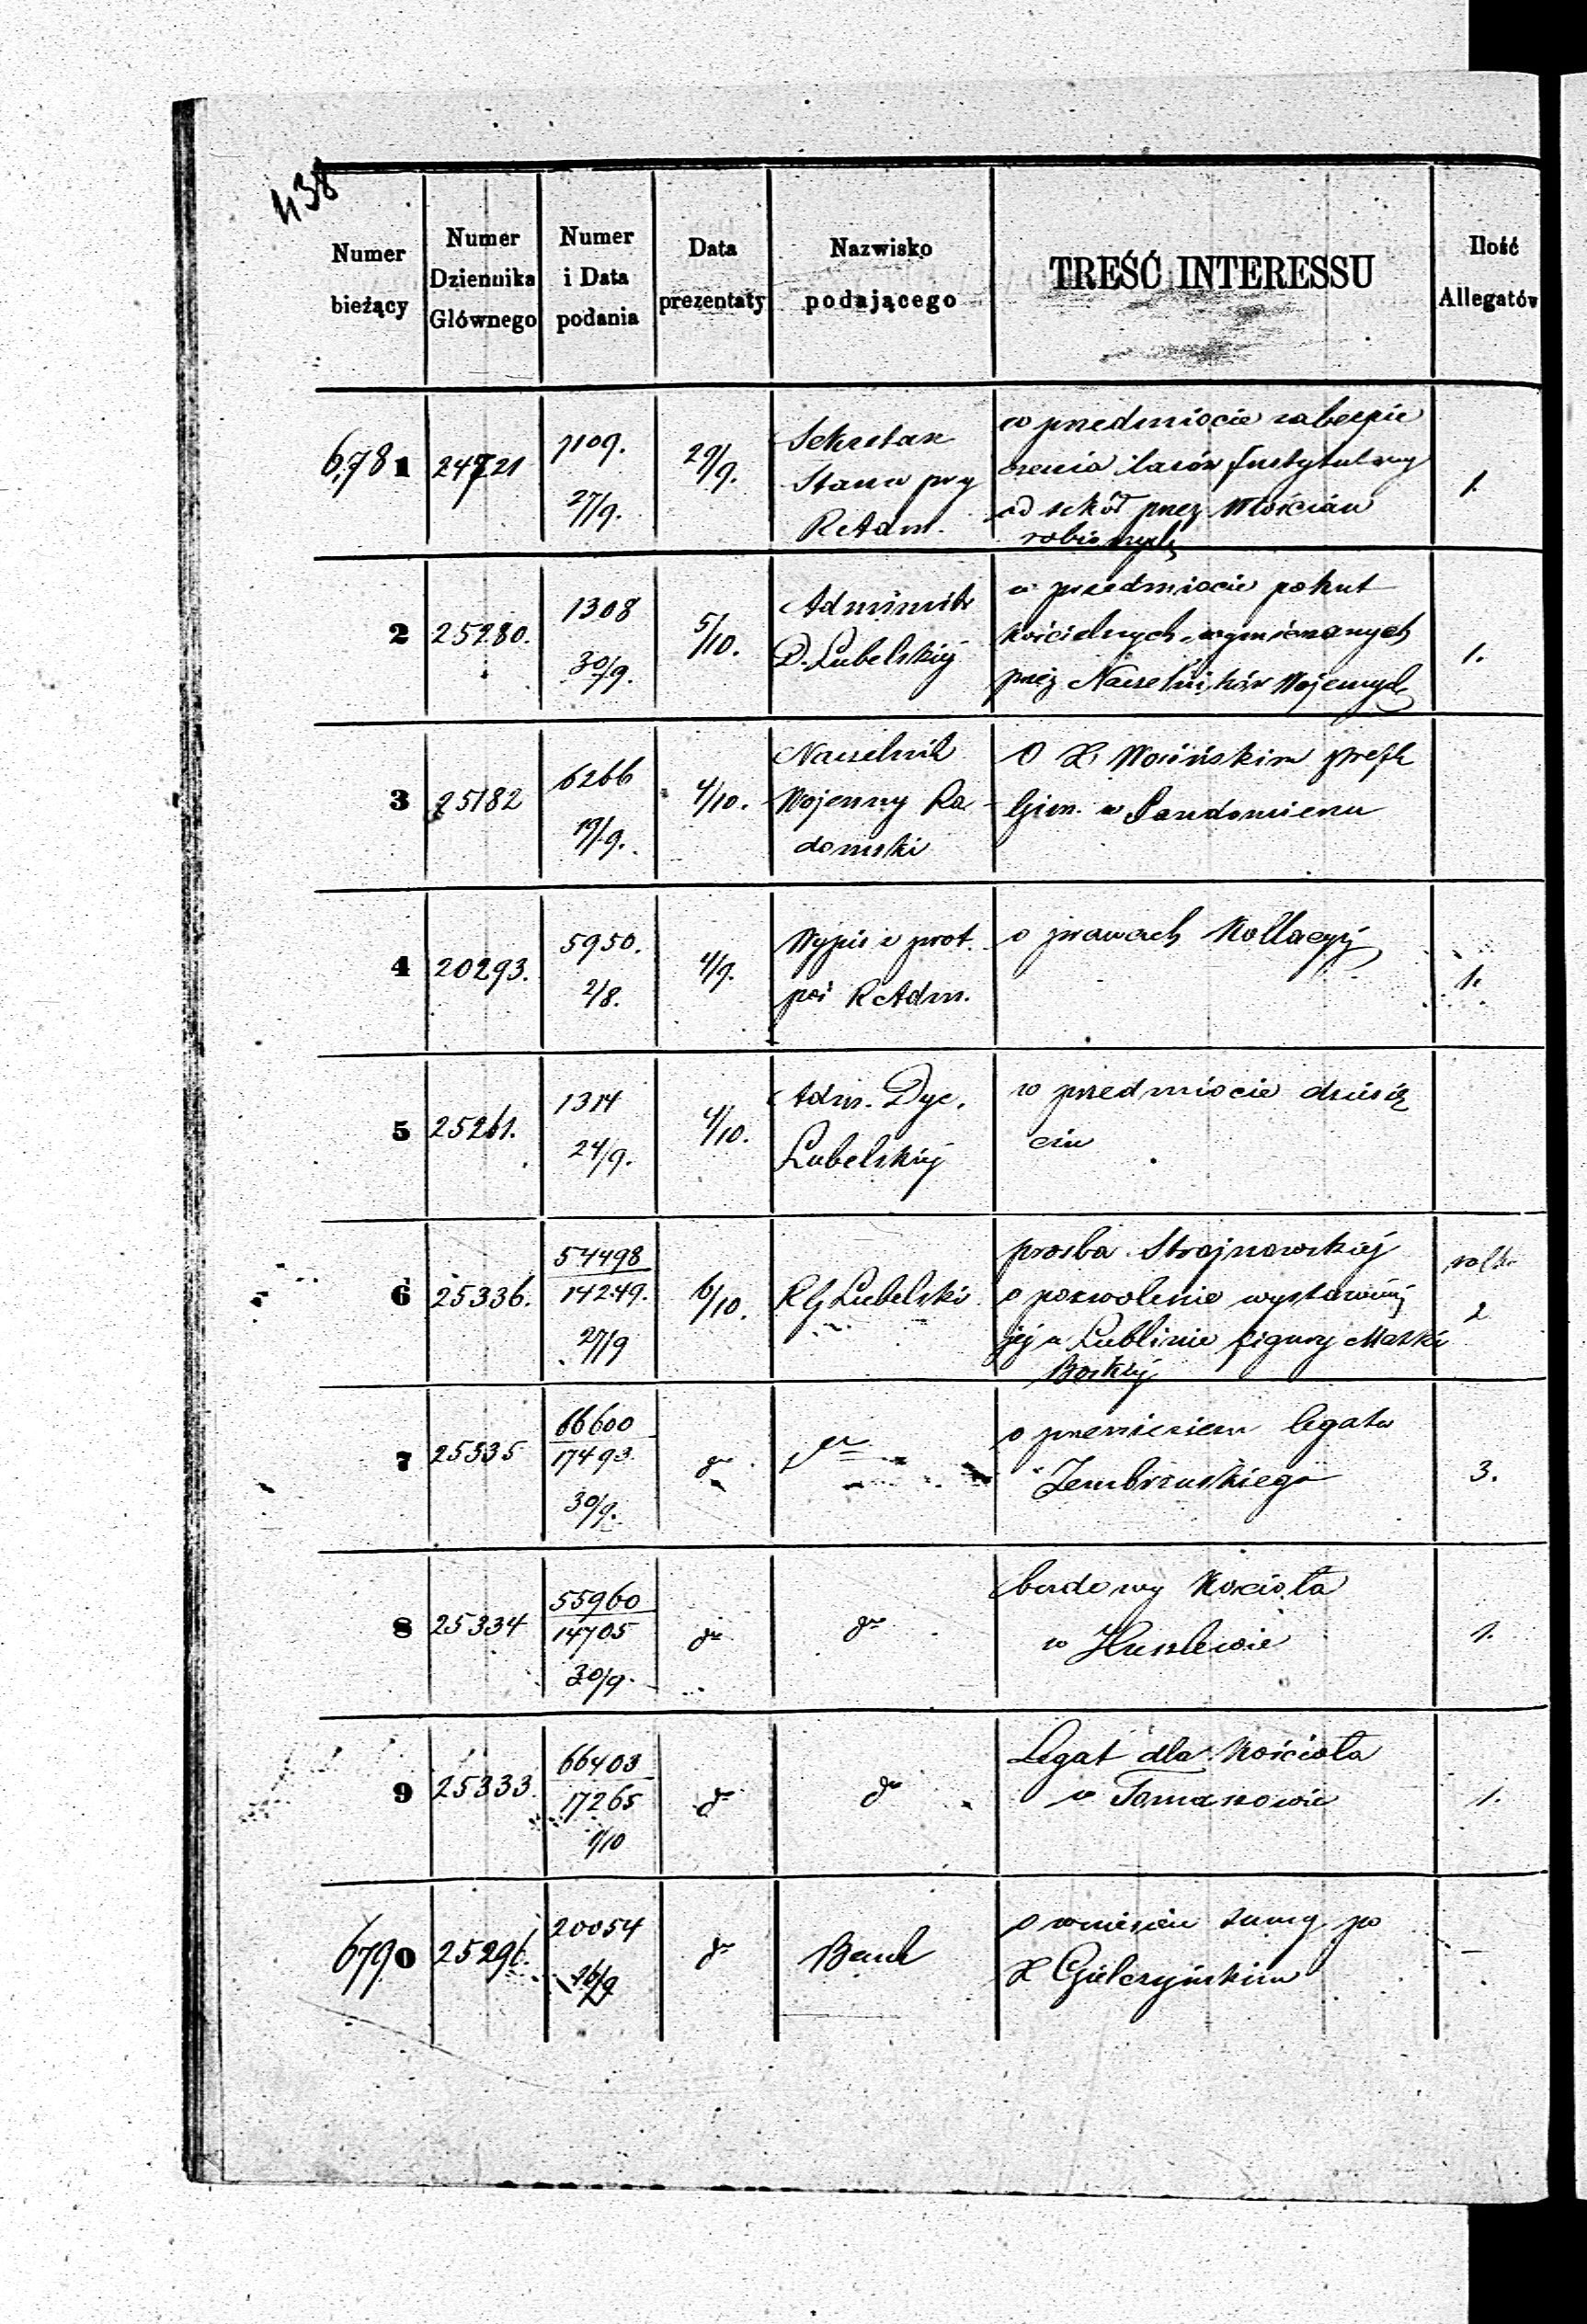 438
Numer bieżący
Numer Dziennika Głównego
Numer i Data podania
Data prezentaty
Nazwisko podającego
TREŚĆ INTERESSU
Ilość Allegatów
6781 24721
1109.
27/9.
29/9.
Sekretarz
Stanu przy
R Adm.
w przedmiocie zabezpie
czenia lasów Instytutowy
od szkód przez Włościan
robionych
1.
2 25280.
1308
30/9.
5/10.
Administr
D. Lubelskiej
w przedmiocie pokut
kościelnych wymierzanych
przez Naczelników Wojennych
1.
3 25182
6266
19/9.
4/10.
Naczelnik
Wojenny Ra
domski
O X Wosińskim prefek
Gim. w Sandomierzu
4 20293.
5950.
2/8.
4/9.
Wypis z prot.
pos R Adm.
o prawach Kollacyi
1.
5 25261.
1314
24/9.
4/10.
Adm. Dyc.
Lubelskiej
w przedmiocie dziesię
cin
6 25336.
54498
14249.
27/9
6/10.
RG Lubelski
prośba Strojnowskiej
o pozwolenie wystawienia
jej w Lublinie figury Matki
Boskiej
2
7 25335
66600
17493.
30/9.
do
do
o przeniesieniu legatu
Zembrzuskiego
3.
8 25334
55960
14705
30/9.
do
do
budowy Kościoła
w Huszlewie
1.
9 25333.
66403
17265
1/10
do
do
Legat dla Kościoła
w Tomaszowie
1.
6790 25296.
20054
26/9
do
Bank
o wniesieniu sumy po
X Gielczyńskim
—